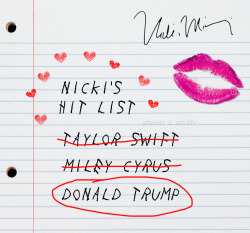 Nicki's
HIT LIST
TAYLOR SWIFT
MILEY CYRUS
DONALD TRUMP